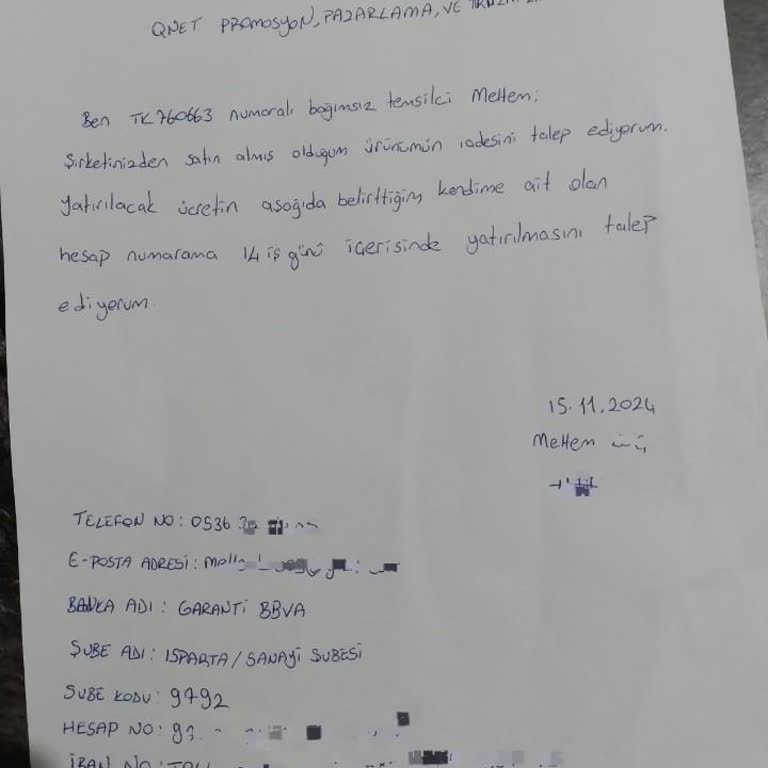 QNET PROMOSYON, PAZARLAMA, VE
Ben TK760663 numaralı bağımsız temsilci Meltem;
Şirketinizden satın almış olduğum ürünümün iadesini talep ediyorum.
Yatırılacak ücretin aşağıda belirttiğim kendime ait olan
hesap numarama 14 iş günü içerisinde yatırılmasını talep
ediyorum.
15.11.2024
Meltem
TELEFON NO: 0536
E-POSTA ADRESİ:
BANKA ADI: GARANTİ BBVA
ŞUBE ADI: ISPARTA/SANAYİ ŞUBESİ
ŞUBE KODU: 9792
HESAP NO:
İBAN NO: